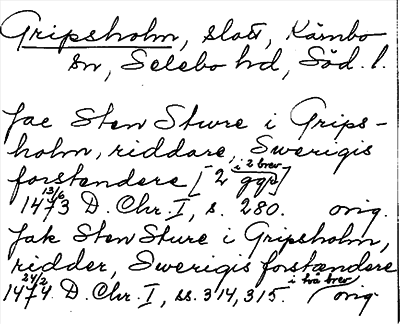 Gripsholm, slott, Kärnbo
sn, Selebo hd, Söd. l.
Jac Sten Sture i Grips-
holm, riddare, Swerigis
forstendere [2 ggr]
i 2 brev
1473 13/6 D. Chr. I, s. 280. orig.
Jak Sten Sture i Gripsholm,
ridder, Swerigis forstændere
i två brev
1474 24/2 D. Chr. I, ss. 314, 315. orig.